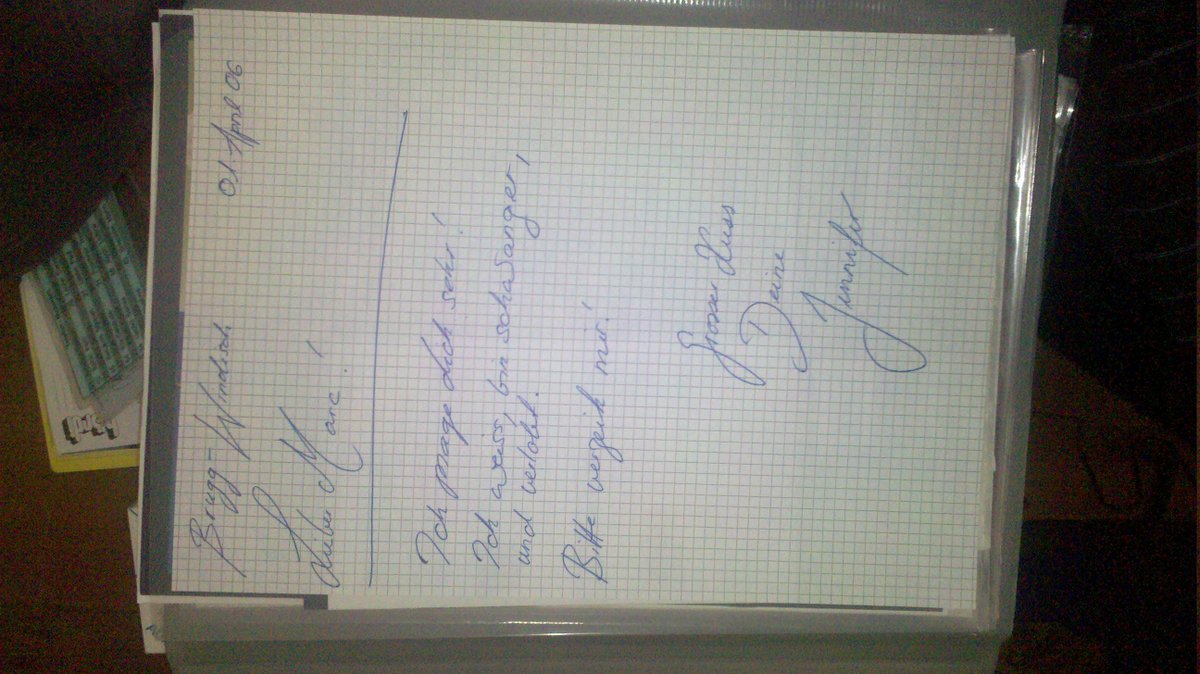 Brugg-Windisch 01. April 06
Lieber Marc!
Ich mage dich sehr!
Ich weiss, bin schwanger,
und verlobt.
Bitte verzeih mir!
Grosser Kuss
Deine
Jennifer